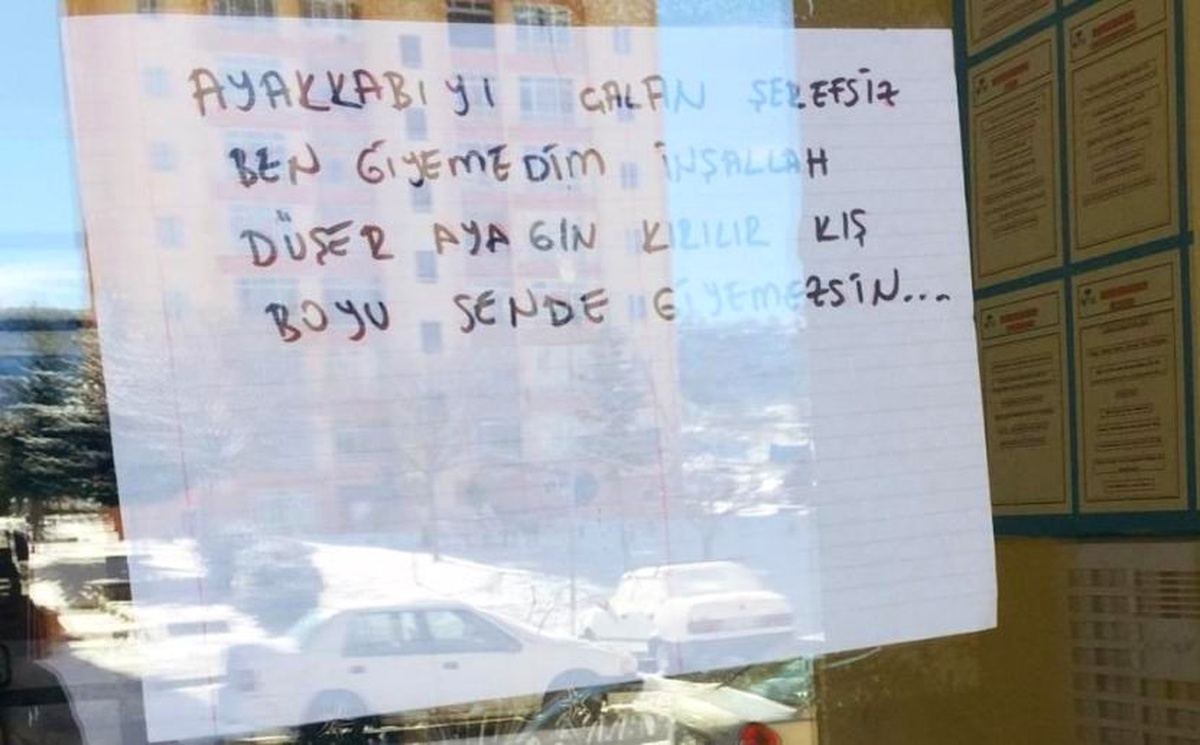 AYAKKABIYI GALAN ŞEREFSİZ
BEN GİYEMEDİM İNŞALLAH
DÜŞER AYAGIN KIRILIR KIŞ
BOYU SENDE GİYEMEZSİN....